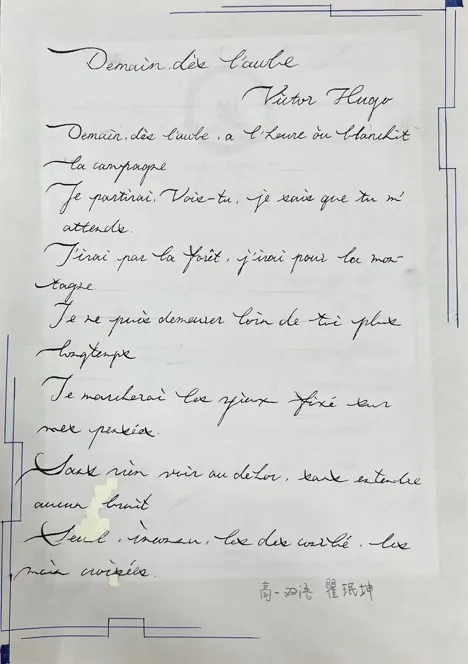 Demain, dès l'aube
Victor Hugo
Demain, dès l'aube, a l'heure ou blanchit
la campagne
Je partirai, Vois-tu, je sais que tu m'
attends.
J'irai par la forêt, j'irai pour la mon-
tagne
Je ne puis demeurer loin de toi plus
longtemps
Je marcherai les yeux fixé sur
mes pensées.
Sans rien voir au dehor, sans entendre
aucun bruit
Seul, inconnu, les dos courbé, les
main croisées.
高一双语 瞿珉坤